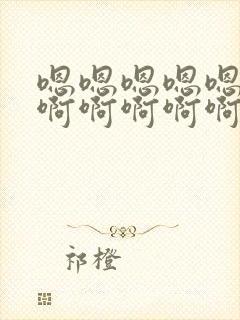 嗯嗯嗯嗯嗯
啊啊啊啊啊
祁橙